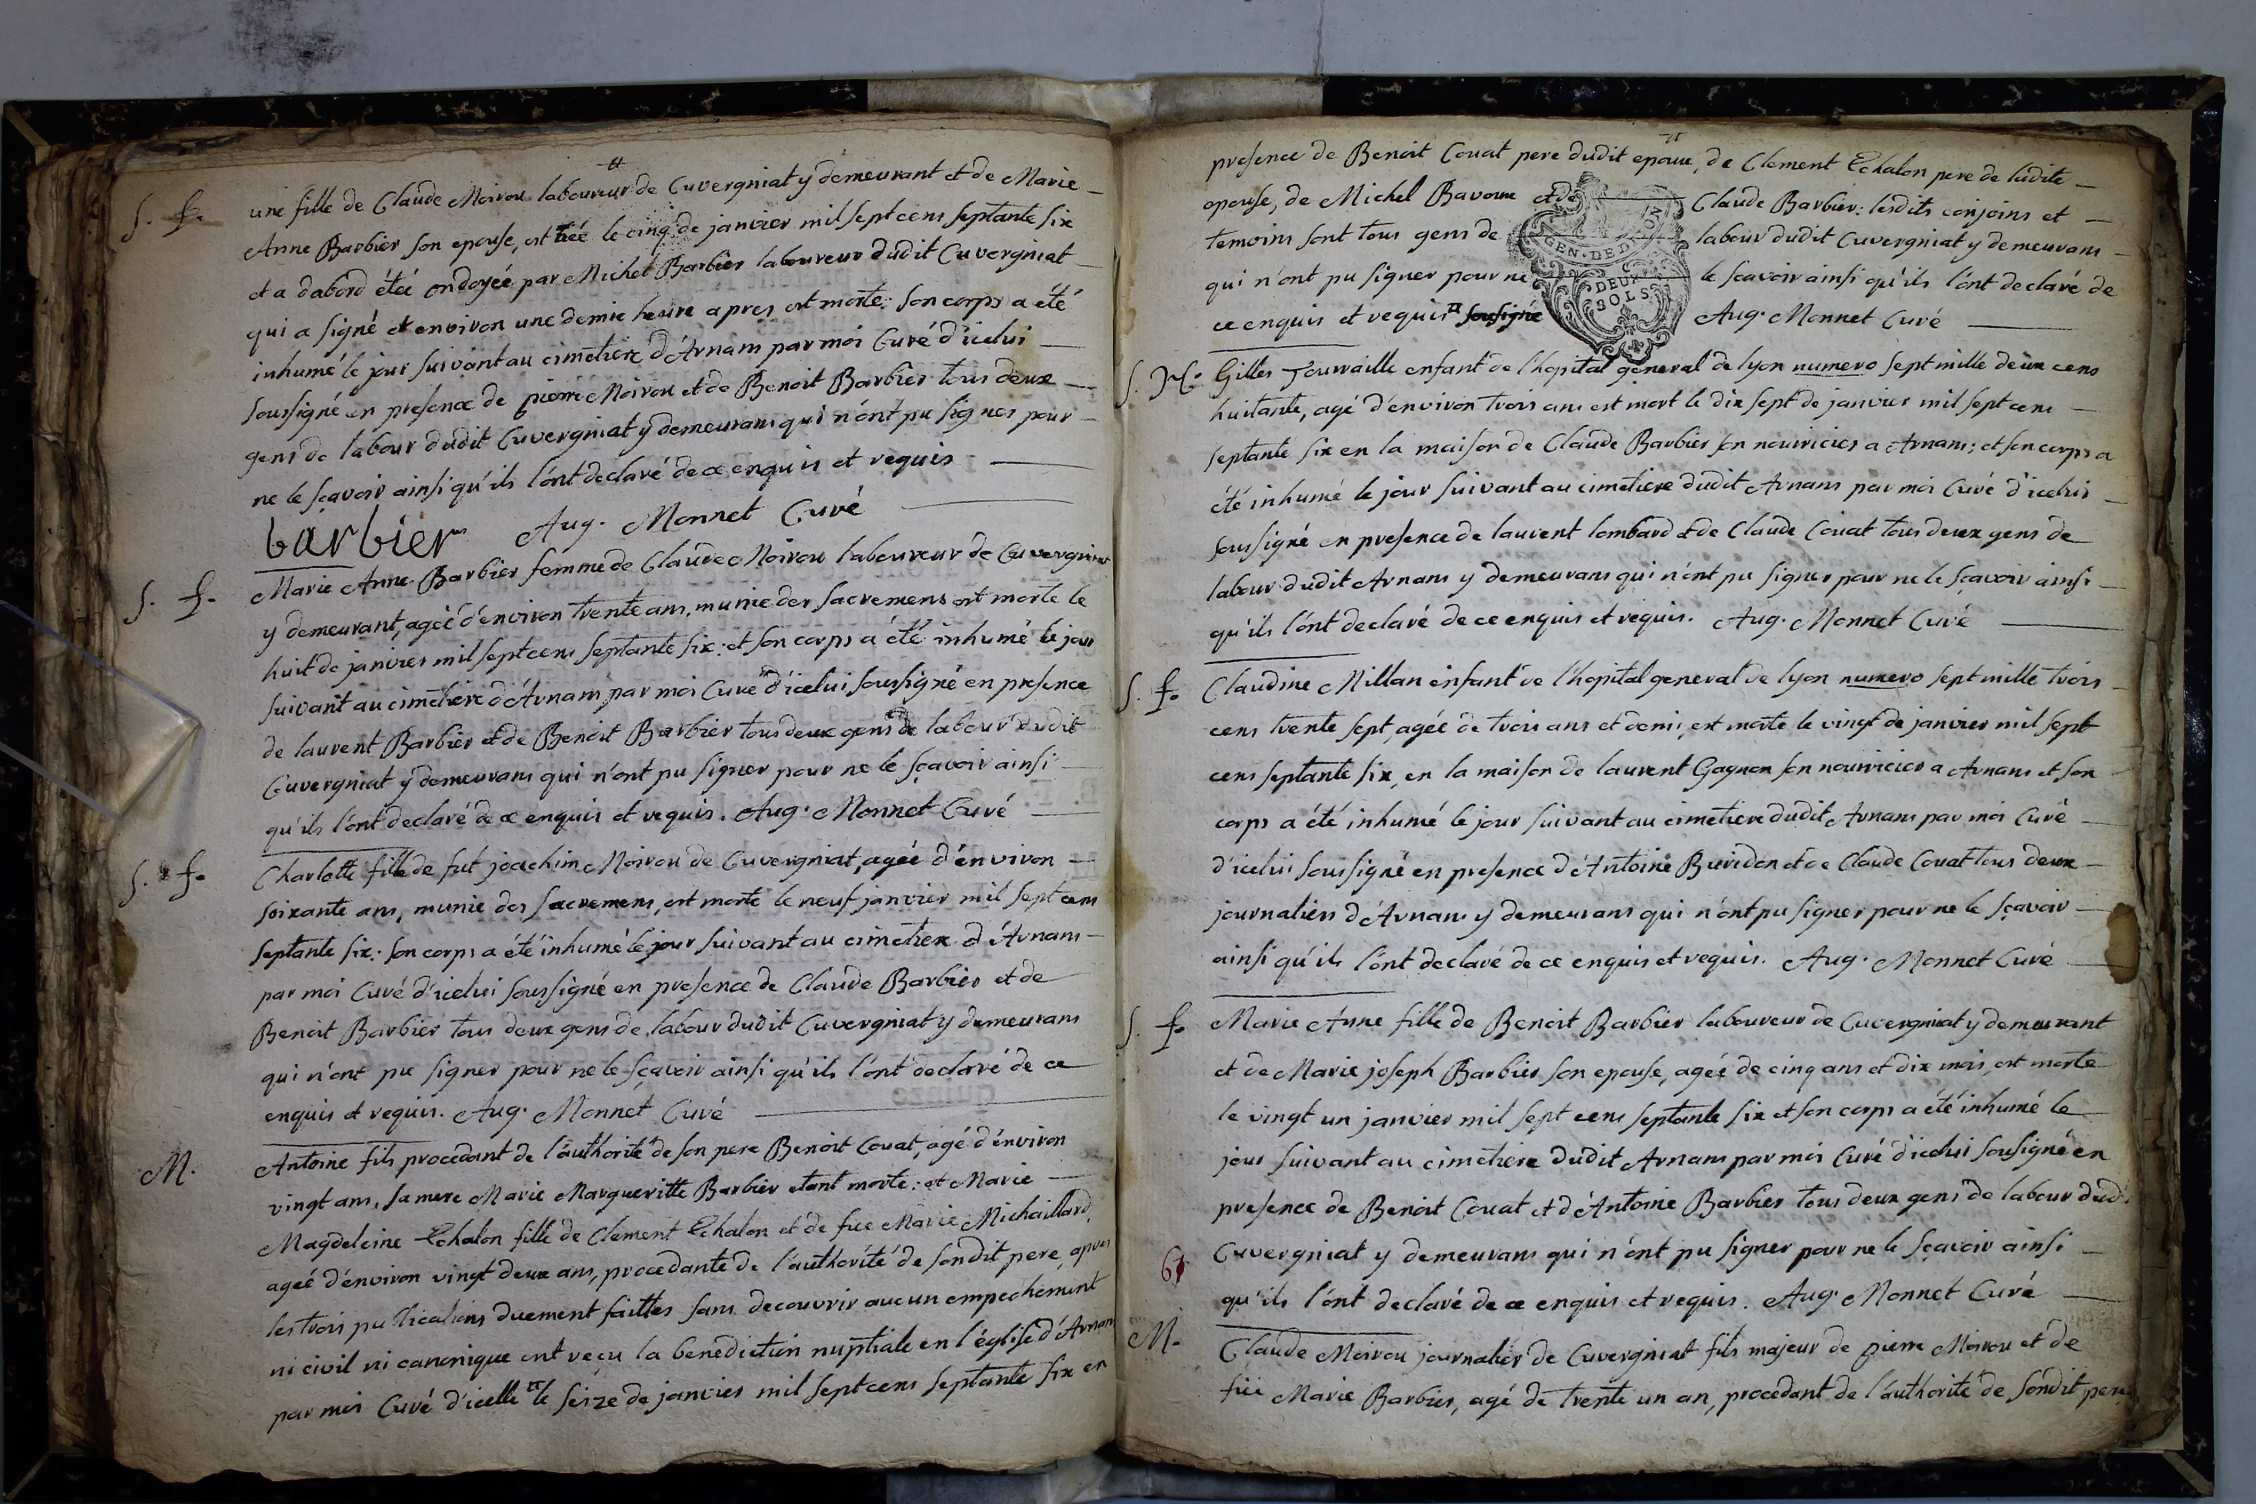 S. f. une fille de Claude Moirou laboureur de Cuvergniat y demeurant et de Marie
Anne Barbier son epouse, est née le cinq de janvier mil sept cens septante six
et a dabord étée ondoyée par Michel Barbier laboureur dudit Cuvergniat
qui a signé et environ une demie heure apres est morte: son corps a été
inhumé le jour suivant au cimetiere d'Arnans par moi Curé d'icelui
soussigné en presence de pierre Moirou et de Benoit Barbier tous deux
gens de labour dudit Cuvergniat y demeurans qui n'ont pu signer pour
ne le sçavoir ainsi qu'ils l'ont declaré de ce enquis et requis
barbier Aug. Monnet Curé
S. f. Marie Anne Barbier femme de Claude Moirou laboureur de Cuvergniat
y demeurant, agée d'environ trente ans, munie des sacremens est morte le
huit de janvier mil sept cens septante six: et son corps a été inhumé le jour
suivant au cimetiere d'Arnans par moi Curé d'icelui soussigné en presence
de laurent Barbier et de Benoit Barbier tous deux gens de labour dudit
Cuvergniat y demeurans qui n'ont pu signer pour ne le sçavoir ainsi
qu'ils l'ont declaré de ce enquis et requis. Aug. Monnet Curé
S. f. Charlotte fille de fut joachim Moirou de Cuvergniat, agée d'environ
soixante ans, munie des sacremens, est morte le neuf janvier mil sept cens
septante six: son corps a été inhumé le jour suivant au cimetiere d'Arnans
par moi Curé d'icelui soussigné en presence de Claude Barbier et de
Benoit Barbier tous deux gens de labour dudit Cuvergniat y demeurans
qui n'ont pu signer pour ne le sçavoir ainsi qu'ils l'ont declaré de ce
enquis et requis. Aug. Monnet Curé
M. Antoine fils procedant de l'authorité de son pere Benoit Couat, agé d'environ
vingt ans, sa mere Marie Margueritte Barbier etant morte: et Marie
Magdeleine Echalon fille de Clement Echalon et de fue Marie Michaillard,
ageé d'environ vingt deux ans, procedante de l'authorité de sondit pere, apres
les trois publications duement faittes sans decouvrir aucun empechement
ni civil ni canonique ont reçu la benediction nuptiale en l'église d'Arnans
par moi Curé d'icelle le seize de janvier mil sept cens septante six en
presence de Benoit Couat pere dudit epoux, de Clement Echalon pere de ladite
epouse, de Michel Bavoux et de Claude Barbier: lesdits conjoins et
temoins sont tous gens de labour dudit Cuvergniat y demeurans
qui n'ont pu signer pour ne le sçavoir ainsi qu'ils l'ont declaré de
ce enquis et requis sousigné Aug. Monnet Curé
GEN. DE DIJON
DEUX
SOLS
S. M. Gilles Touvaille enfant de l'hopital general de lyon numero sept mille deux cens
huitante, agé d'environ trois ans est mort le dix sept de janvier mil sept cens
septante six en la maison de Claude Barbier son nourricier a Arnans; et son corps a
été inhumé le jour suivant au cimetiere dudit Arnans par moi Curé d'icelui
soussigné en presence de laurent lombard et de Claude Couat tous deux gens de
labour dudit Arnans y demeurans qui n'ont pu signer pour ne le sçavoir ainsi
qu'ils l'ont declaré de ce enquis et requis. Aug. Monnet Curé
S. f. Claudine Millan enfant de l'hopital general de lyon numero sept mille trois
cens trente sept, agée de trois ans et demi, est morte le vingt de janvier mil sept
cens septante six, en la maison de laurent Gagnon son nourricier a Arnans et son
corps a été inhumé le jour suivant au cimetiere dudit Arnans par moi Curé
d'icelui soussigné en presence d'Antoine Buvidon et de Claude Couat tous deux
journaliers d'Arnans y demeurans qui n'ont pu signer pour ne le sçavoir
ainsi qu'ils l'ont declaré de ce enquis et requis. Aug. Monnet Curé
S. f. Marie Anne fille de Benoit Barbier laboureur de Cuvergniat y demeurant
et de Marie joseph Barbier son epouse, agée de cinq ans et dix mois, est morte
le vingt un janvier mil sept cens septante six et son corps a été inhumé le
jour suivant au cimetiere dudit Arnans par moi Curé d'icelui sousigné en
presence de Benoit Couat et d'Antoine Barbier tous deux gens de labour dudit
Cuvergniat y demeurans qui n'ont pu signer pour ne le sçavoir ainsi
qu'ils l'ont declaré de ce enquis et requis. Aug. Monnet Curé
M. Claude Moirou journalier de Cuvergniat fils majeur de pierre Moirou et de
füe Marie Barbier, agé de trente un an, procedant de l'authorité de sondit pere,